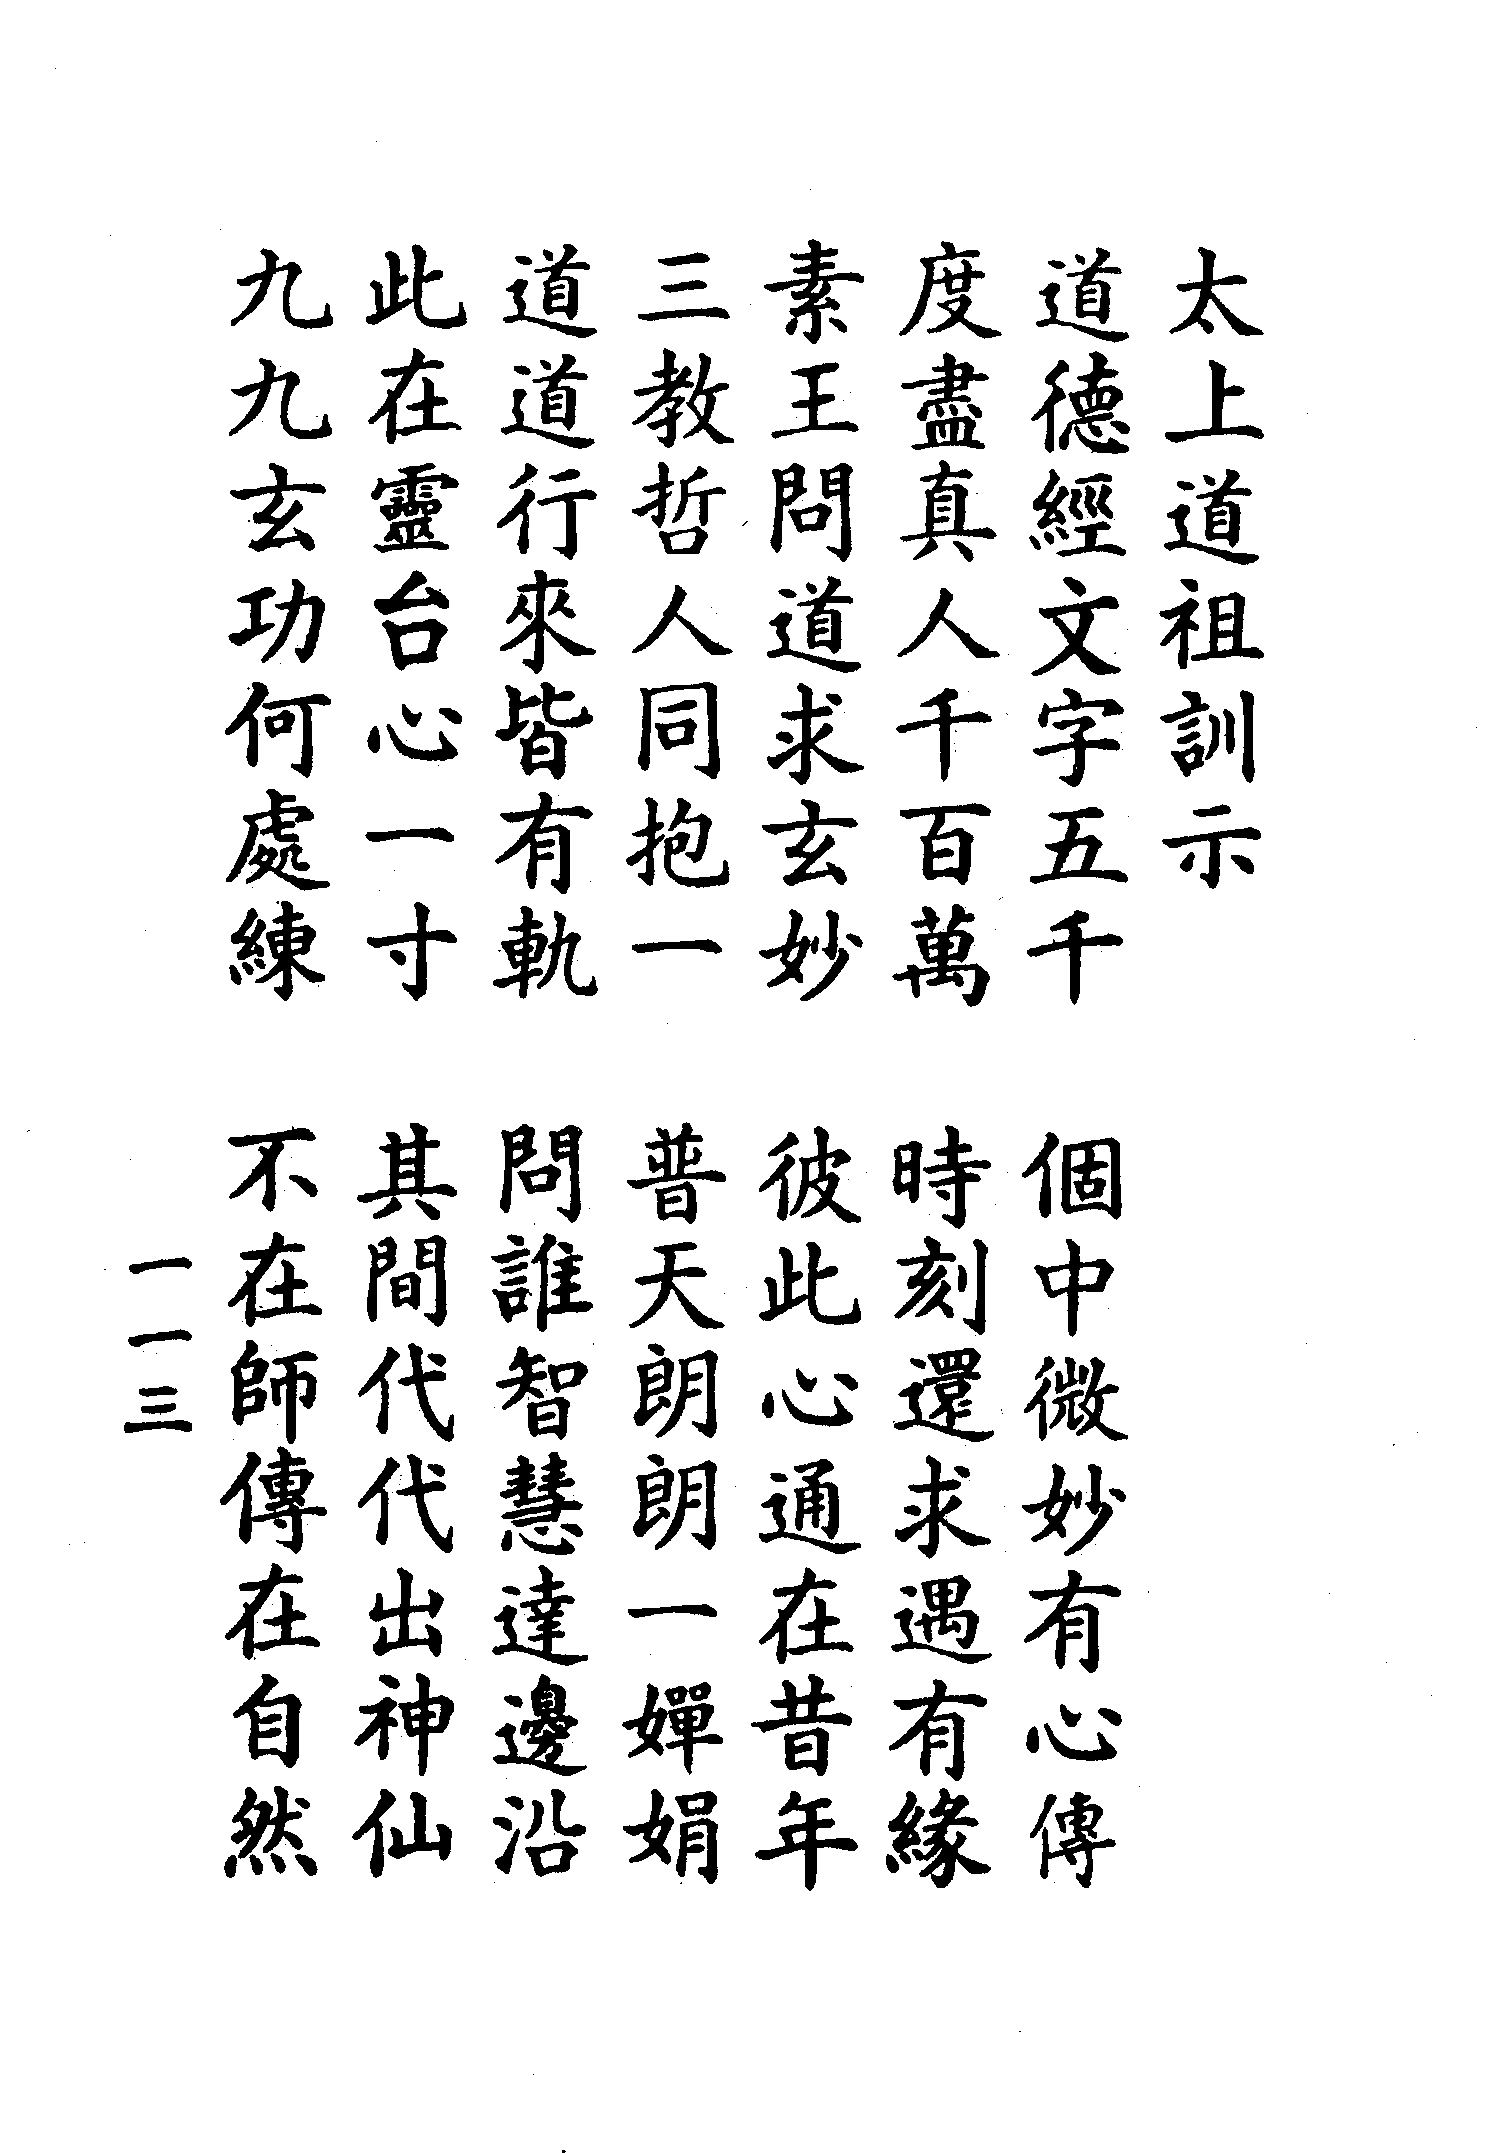 太上道祖訓示
道德經文字五千　個中微妙有心傳
度盡真人千百萬　時刻還求遇有緣
素王問道求玄妙　彼此心通在昔年
三教哲人同抱一　普天朗朗一嬋娟
道道行來皆有軌　問誰智慧達邊沿
此在靈台心一寸　其間代代出神仙
九九玄功何處練　不在師傳在自然
一一三